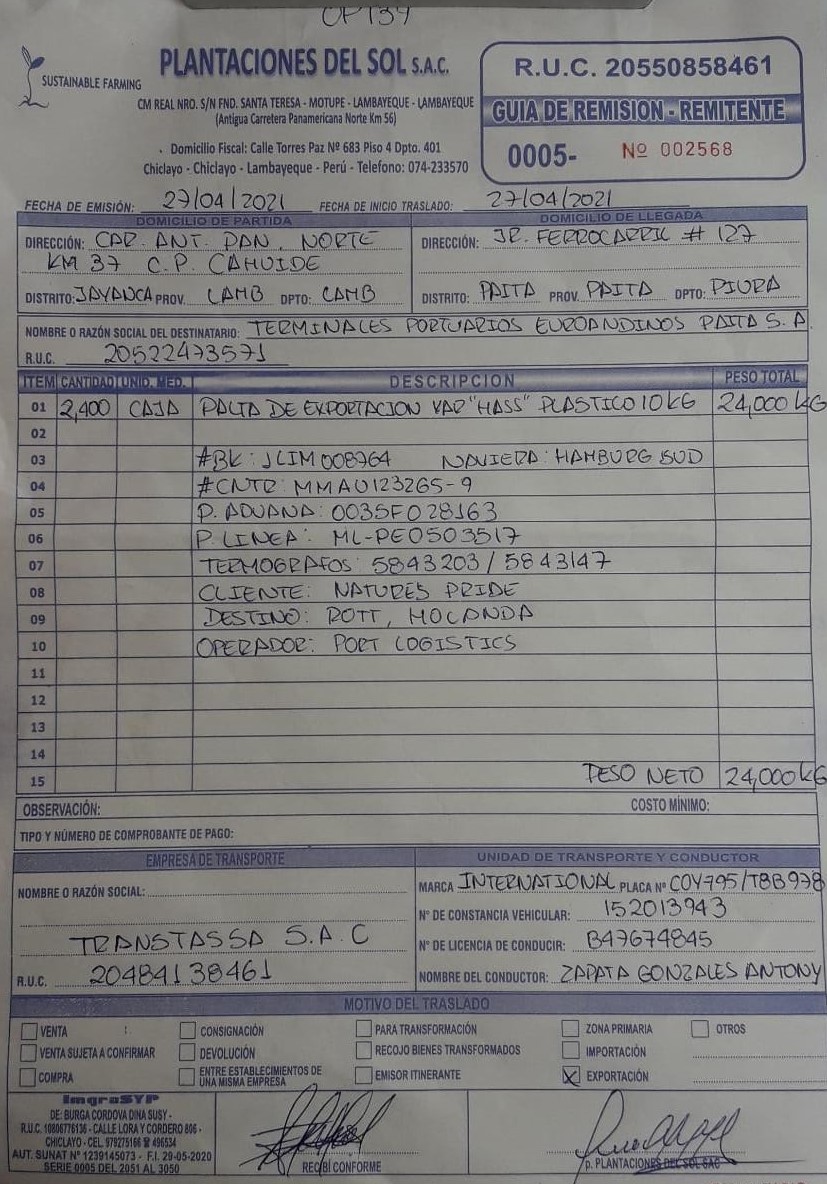 OPT39
SUSTAINABLE FARMING
PLANTACIONES DEL SOL S.A.C.
CM REAL NRO. S/N FND. SANTA TERESA - MOTUPE - LAMBAYEQUE - LAMBAYEQUE
(Antigua Carretera Panamericana Norte Km 56)
Domicilio Fiscal: Calle Torres Paz Nº 683 Piso 4 Dpto. 401
Chiclayo - Chiclayo - Lambayeque - Perú - Telefono: 074-233570
R.U.C. 20550858461
GUIA DE REMISION - REMITENTE
0005- Nº 002568
FECHA DE EMISIÓN: 27/04/2021 FECHA DE INICIO TRASLADO: 27/04/2021
DOMICILIO DE PARTIDA
DIRECCIÓN: CAR. ANT. PAN. NORTE
KM 37 C.P. CAHUIDE
DISTRITO: JAYANCA PROV. LAMB DPTO: LAMB
DOMICILIO DE LLEGADA
DIRECCIÓN: JR. FERROCARRIL # 127
DISTRITO: PAITA PROV. PAITA DPTO: PIURA
NOMBRE O RAZÓN SOCIAL DEL DESTINATARIO: TERMINALES PORTUARIOS EUROANDINOS PAITA S.A
R.U.C. 20522473571
ITEM CANTIDAD UNID. MED. DESCRIPCION PESO TOTAL
01 2,400 CAJA PALTA DE EXPORTACION VAR "HASS" PLASTICO 10 KG 24,000 KG
02
03 #BK: JLIM008964 NAVIERA: HAMBURG SUD
04 #CNTR: MMAU123265-9
05 P. ADUANA: 0035F028163
06 P. LINEA: ML-PE0503517
07 TERMOGRAFOS: 5843203 / 5843147
08 CLIENTE: NATURES PRIDE
09 DESTINO: ROTT, HOLANDA
10 OPERADOR: PORT LOGISTICS
11
12
13
14
15 PESO NETO 24,000 KG
OBSERVACIÓN: COSTO MÍNIMO:
TIPO Y NÚMERO DE COMPROBANTE DE PAGO:
EMPRESA DE TRANSPORTE
NOMBRE O RAZÓN SOCIAL:
TRANSTASSA S.A.C
R.U.C. 20484138461
UNIDAD DE TRANSPORTE Y CONDUCTOR
MARCA INTERNATIONAL PLACA Nº C0Y795/T8B978
Nº DE CONSTANCIA VEHICULAR: 152013943
Nº DE LICENCIA DE CONDUCIR: B47674845
NOMBRE DEL CONDUCTOR: ZAPATA GONZALES ANTONY
MOTIVO DEL TRASLADO
VENTA CONSIGNACIÓN PARA TRANSFORMACIÓN ZONA PRIMARIA OTROS
VENTA SUJETA A CONFIRMAR DEVOLUCIÓN RECOJO BIENES TRANSFORMADOS IMPORTACIÓN
COMPRA ENTRE ESTABLECIMIENTOS DE UNA MISMA EMPRESA EMISOR ITINERANTE X EXPORTACIÓN
ImgraSYP
DE: BURGA CORDOVA DINA SUSY -
R.U.C. 10806776136 - CALLE LORA Y CORDERO 806 -
CHICLAYO - CEL. 979275166 ☎ 496534
AUT. SUNAT Nº 1239145073 - F.I. 29-05-2020
SERIE 0005 DEL 2051 AL 3050
RECIBÍ CONFORME
p. PLANTACIONES DEL SOL SAC